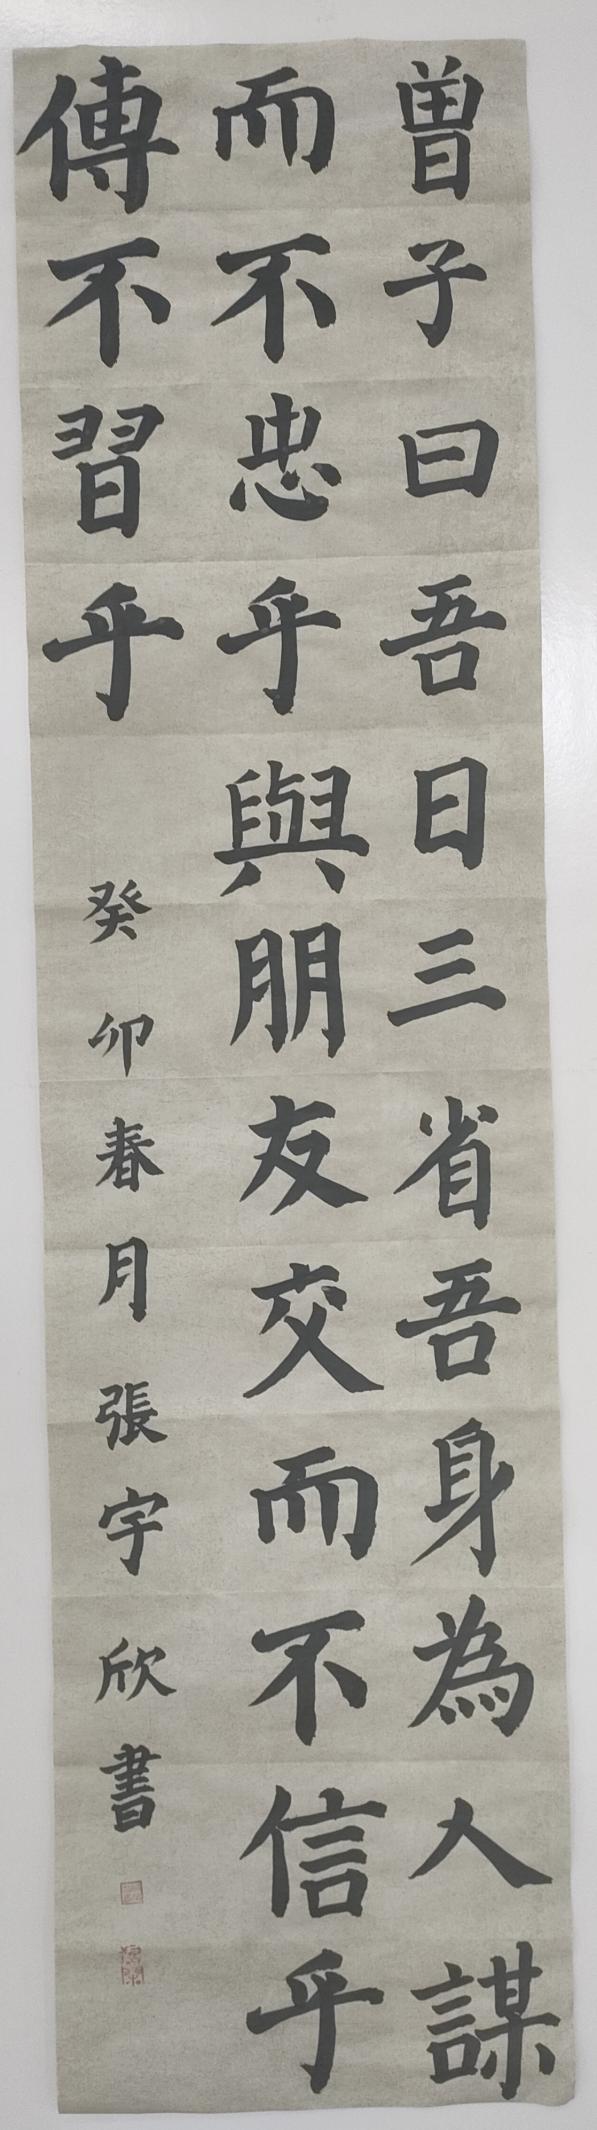 曾子曰吾日三省吾身為人謀
而不忠乎與朋友交而不信乎
傳不習乎
癸卯春月張宇欣書